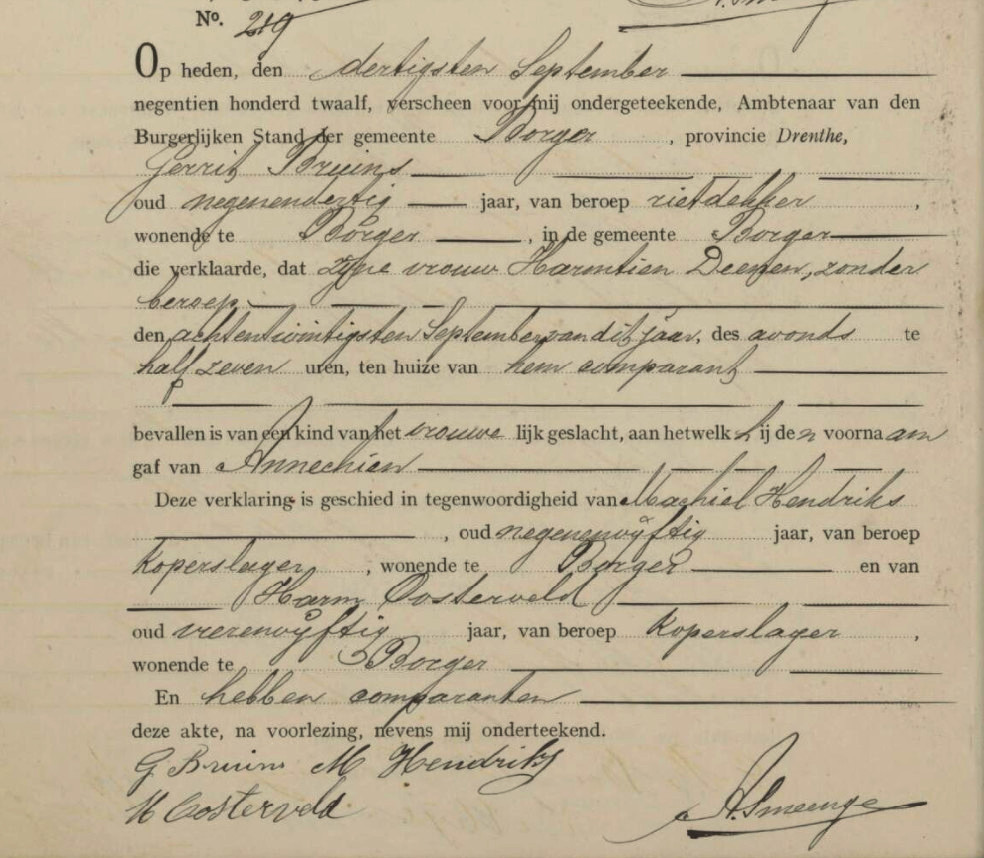 No. 219
Op heden, den dertigsten September
negentien honderd twaalf, verscheen voor mij ondergeteekende, Ambtenaar van den
Burgerlijken Stand der gemeente Borger, provincie Drenthe,
Gerrit Bruins
oud negenendertig jaar, van beroep rietdekker,
wonende te Borger, in de gemeente Borger
die verklaarde, dat zijne vrouw Harmtien Deenen, zonder
beroep
den achtentwintigsten September van dit jaar, des avonds te
half zeven uren, ten huize van hem comparant
bevallen is van een kind van het vrouwelijk geslacht, aan hetwelk hij den voornaam
gaf van Annechien
Deze verklaring is geschied in tegenwoordigheid van Machiel Hendriks
, oud negenenvijftig jaar, van beroep
koperslager, wonende te Borger en van
Harm Oosterveld
oud vierenvijftig jaar, van beroep koperslager,
wonende te Borger
En hebben comparanten
deze akte, na voorlezing, nevens mij onderteekend.
G Bruins M Hendriks
H Oosterveld
A. Smeenge